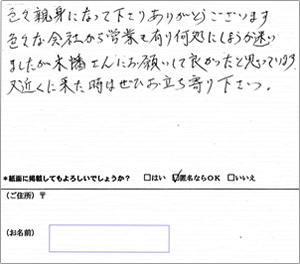 色々親身になって下さりありがとうございます
色々な会社から営業も有り何処にしようか迷い
ましたが木幡さんにお願いして良かったと思っています
又近くに来た時はぜひお立ち寄り下さいっ。
*紙面に掲載してもよろしいでしょうか？ □はい ☑匿名ならOK □いいえ
（ご住所）〒
（お名前）